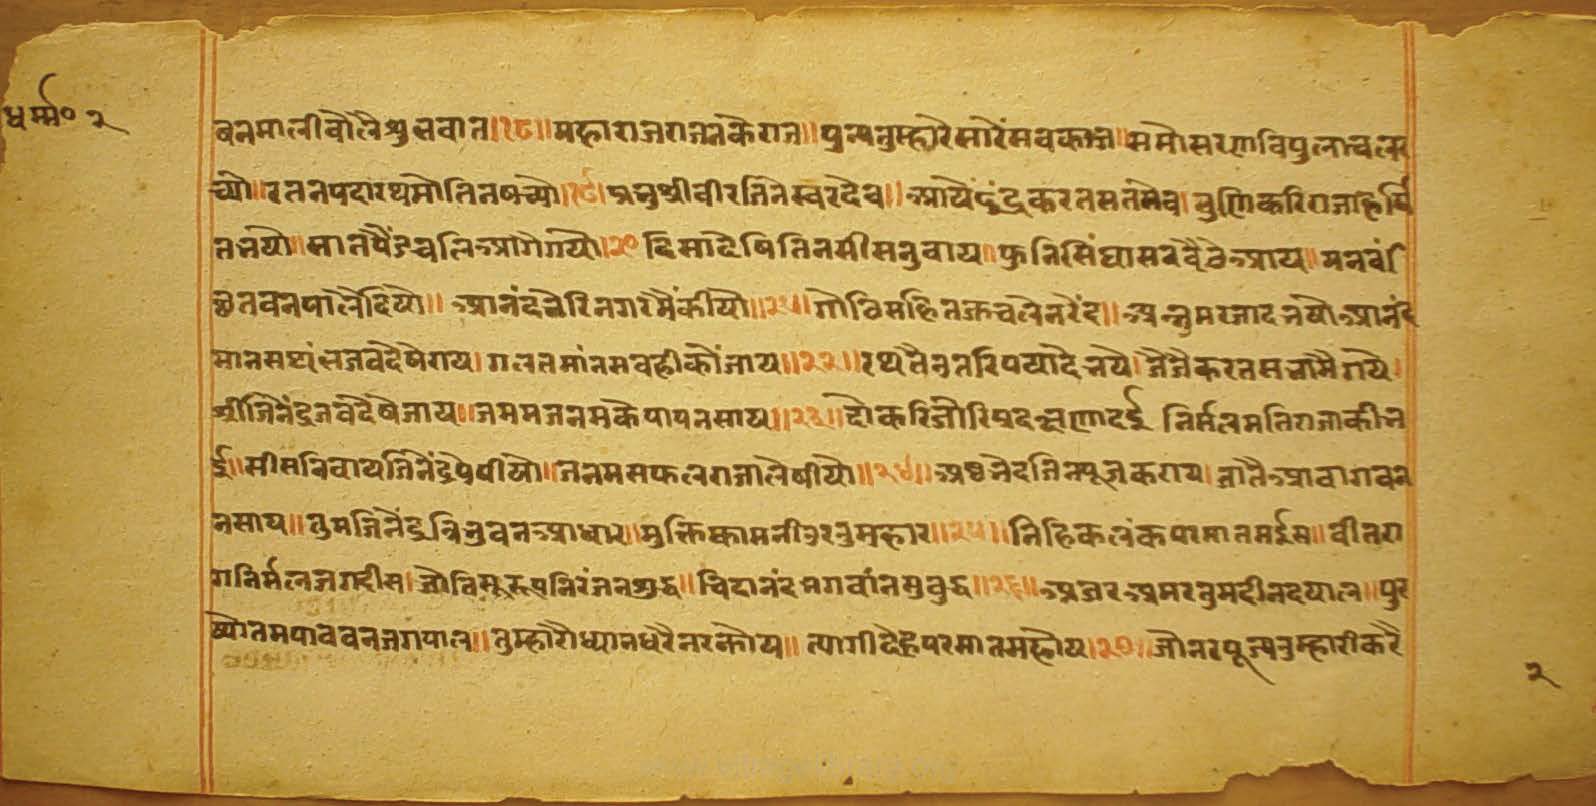 धर्म्म० २
बनमाली बोलै श्रुभ बात॥१८॥ महाराज राजन के राज॥ पुन्य तुम्हारे सारें सब काज॥ समोसरण विपुलाचल र
च्यो॥ रतन पदारथ मोतिन षच्यो॥१९॥ प्रभु श्री वीर जिनेस्वर देव॥ आये इंद्र करत सत सेव। सुणि करि राजा हर्षि
त भयो॥ सात पैंड चलि आगै गयो॥२० दिसा देषि तिन सीस नुवाय॥ फुनि सिंघासन बैठे आय॥ मन बां
छित बनपालै दियो॥ आनंद भेरि नगर मैं कीयो॥२१॥ गोठि सहित चले नरेंद॥ आनंद
मानसथंभ जब देषै राय। गलत मांन सबही कौं जाय॥२२॥ रथ तै उतरि पयादे भये। जै जै करत सभा मै गये।
श्री जिनेंद्र जब देषे जाय॥ जनम जनम के पाप नसाय॥२३॥ दोकरि जोरि प्रदक्षणा दई निर्मल मति राजा की भ
ई॥ सीस निवाय जिनेंद्र पेषीयो॥ जनम सफल राजा लेषीयो॥२४॥ अष्ट भेद जिन पूज कराय। जातै आवागवन
नसाय॥ तुम जिनेंद्र त्रिभुवन आधार॥ मुक्ति कामनी उर तुम हार॥२५॥ निहिकलंक परमातम ईस॥ वीतरा
ग निर्मल जगदीस। जोति सुरूप निरंजन श्रुद्ध॥ चिदानंद भगवांन सुबुद्ध॥२६॥ अजर अमर तुम दीनदयाल॥ पुर
ष्योतम पावन जगपाल॥ तुम्हारौ ध्यान धरै नर कोय॥ त्यागी देह परमातम होय।२७॥ जो नर पूज तुम्हारी करै
२